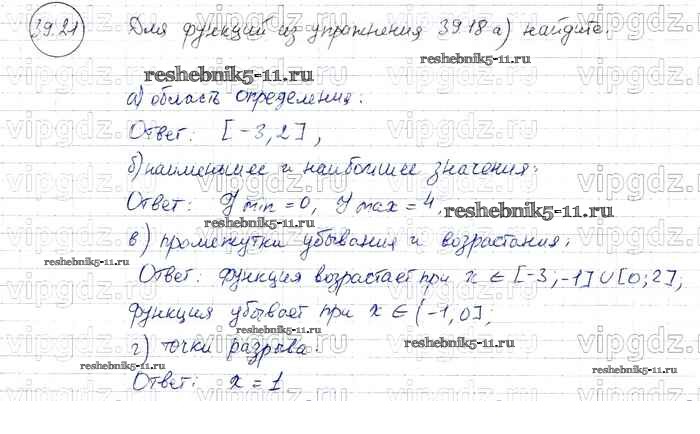 39.21) Для функций из упражнения 39.18 а) найдите.
reshebnik5-11.ru
а) область определения:
Ответ: [-3, 2],
б) наименьшее и наибольшее значения:
Ответ: y min = 0, y max = 4
reshebnik5-11.ru
reshebnik5-11.ru
в) промежутки убывания и возрастания:
reshebnik5-11.ru
Ответ: функция возрастает при x ∈ [-3; -1] ∪ [0; 2],
функция убывает при x ∈ (-1, 0];
reshebnik5-11.ru
г) точки разрыва.
reshebnik5-11.ru
reshebnik5-11.ru
Ответ: x = 1